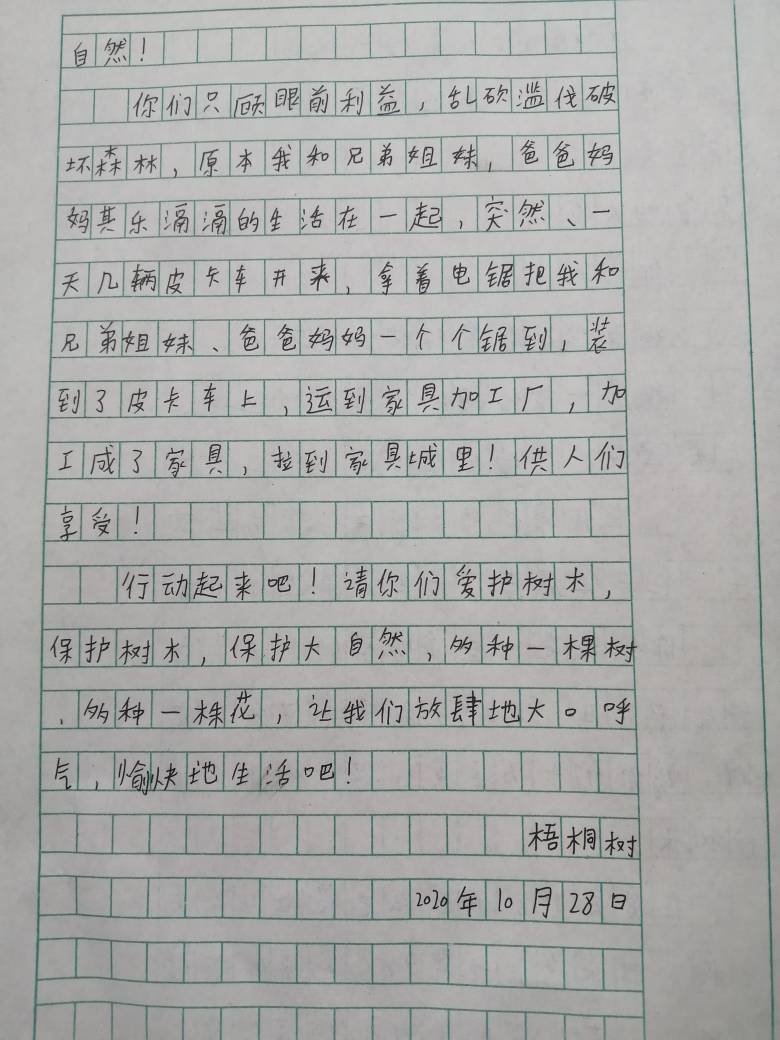 自然！
你们只顾眼前利益，乱砍滥伐破
坏森林，原本我和兄弟姐妹，爸爸妈
妈其乐滆滆的生活在一起，突然、一
天几辆皮卡车开来，拿着电锯把我和
兄弟姐妹、爸爸妈妈一个个锯到，装
到了皮卡车上，运到家具加工厂，加
工成了家具，拉到家具城里！供人们
享受！
行动起来吧！请你们爱护树木，
保护树木，保护大自然，多种一棵树
，多种一株花，让我们放肆地大口呼
气，愉快地生活吧！
梧桐树
2020年10月28日